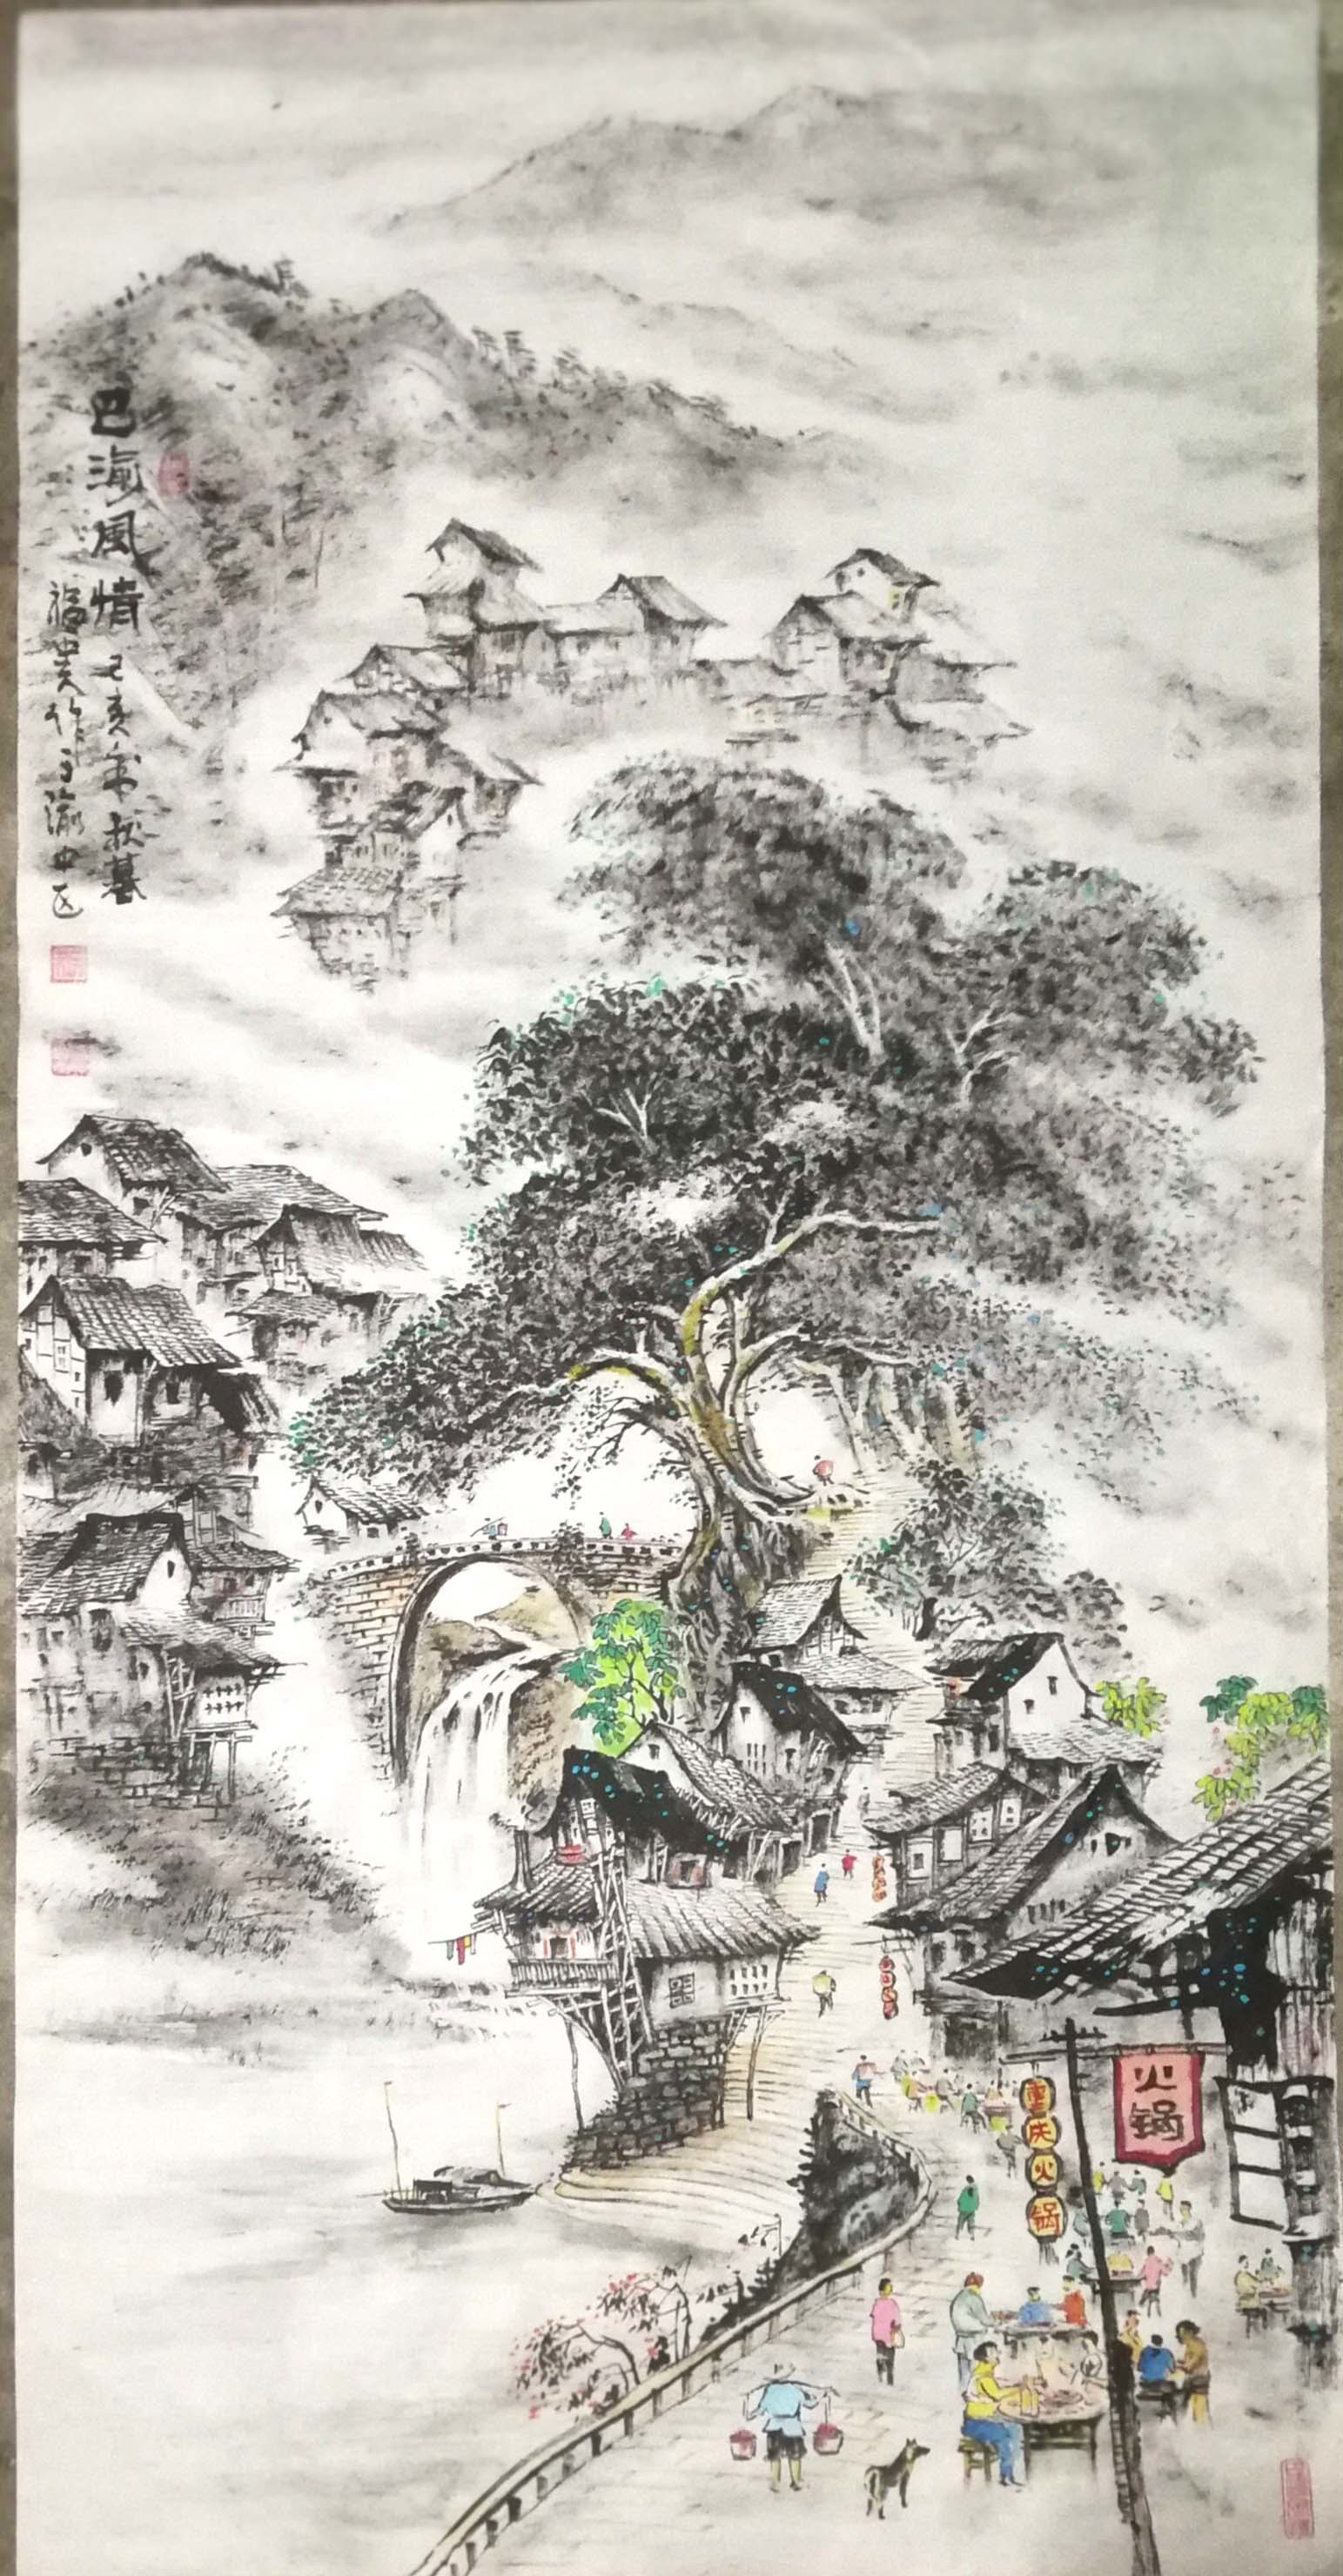 巴渝風情
己亥年秋墓
福贵作于渝中区
火锅
重庆火锅